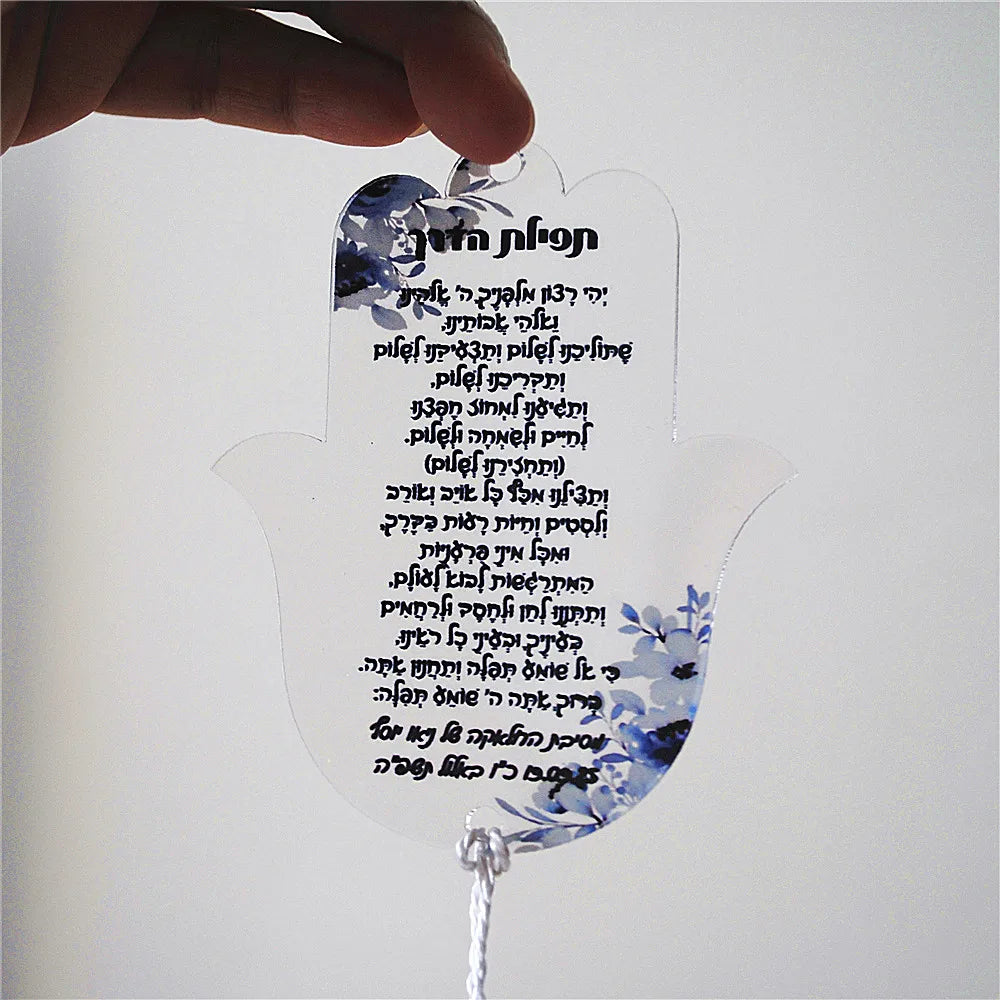 תפילת הדרך
יְהִי רָצוֹן מִלְּפָנֶיךָ ה' אֱלֹהֵינוּ
וֵאלֹהֵי אֲבוֹתֵינוּ,
שֶׁתּוֹלִיכֵנוּ לְשָׁלוֹם וְתַצְעִידֵנוּ לְשָׁלוֹם
וְתַדְרִיכֵנוּ לְשָׁלוֹם,
וְתַגִּיעֵנוּ לִמְחוֹז חֶפְצֵנוּ
לְחַיִּים וּלְשִׂמְחָה וּלְשָׁלוֹם.
(וְתַחְזִירֵנוּ לְשָׁלוֹם)
וְתַצִּילֵנוּ מִכַּף כָּל אוֹיֵב וְאוֹרֵב
וְלִסְטִים וְחַיּוֹת רָעוֹת בַּדֶּרֶךְ,
וּמִכָּל מִינֵי פֻּרְעָנֻיּוֹת
הַמִּתְרַגְּשׁוֹת לָבוֹא לָעוֹלָם,
וְתִתְּנֵנוּ לְחֵן וּלְחֶסֶד וּלְרַחֲמִים
בְּעֵינֶיךָ וּבְעֵינֵי כָל רֹאֵינוּ,
כִּי אֵל שׁוֹמֵעַ תְּפִלָּה וְתַחֲנוּן אַתָּה.
בָּרוּךְ אַתָּה ה' שׁוֹמֵעַ תְּפִלָּה:
מסיבת החלאקה של ניאו יוסף
13.09.25 כ"ו באלול תשפ"ה